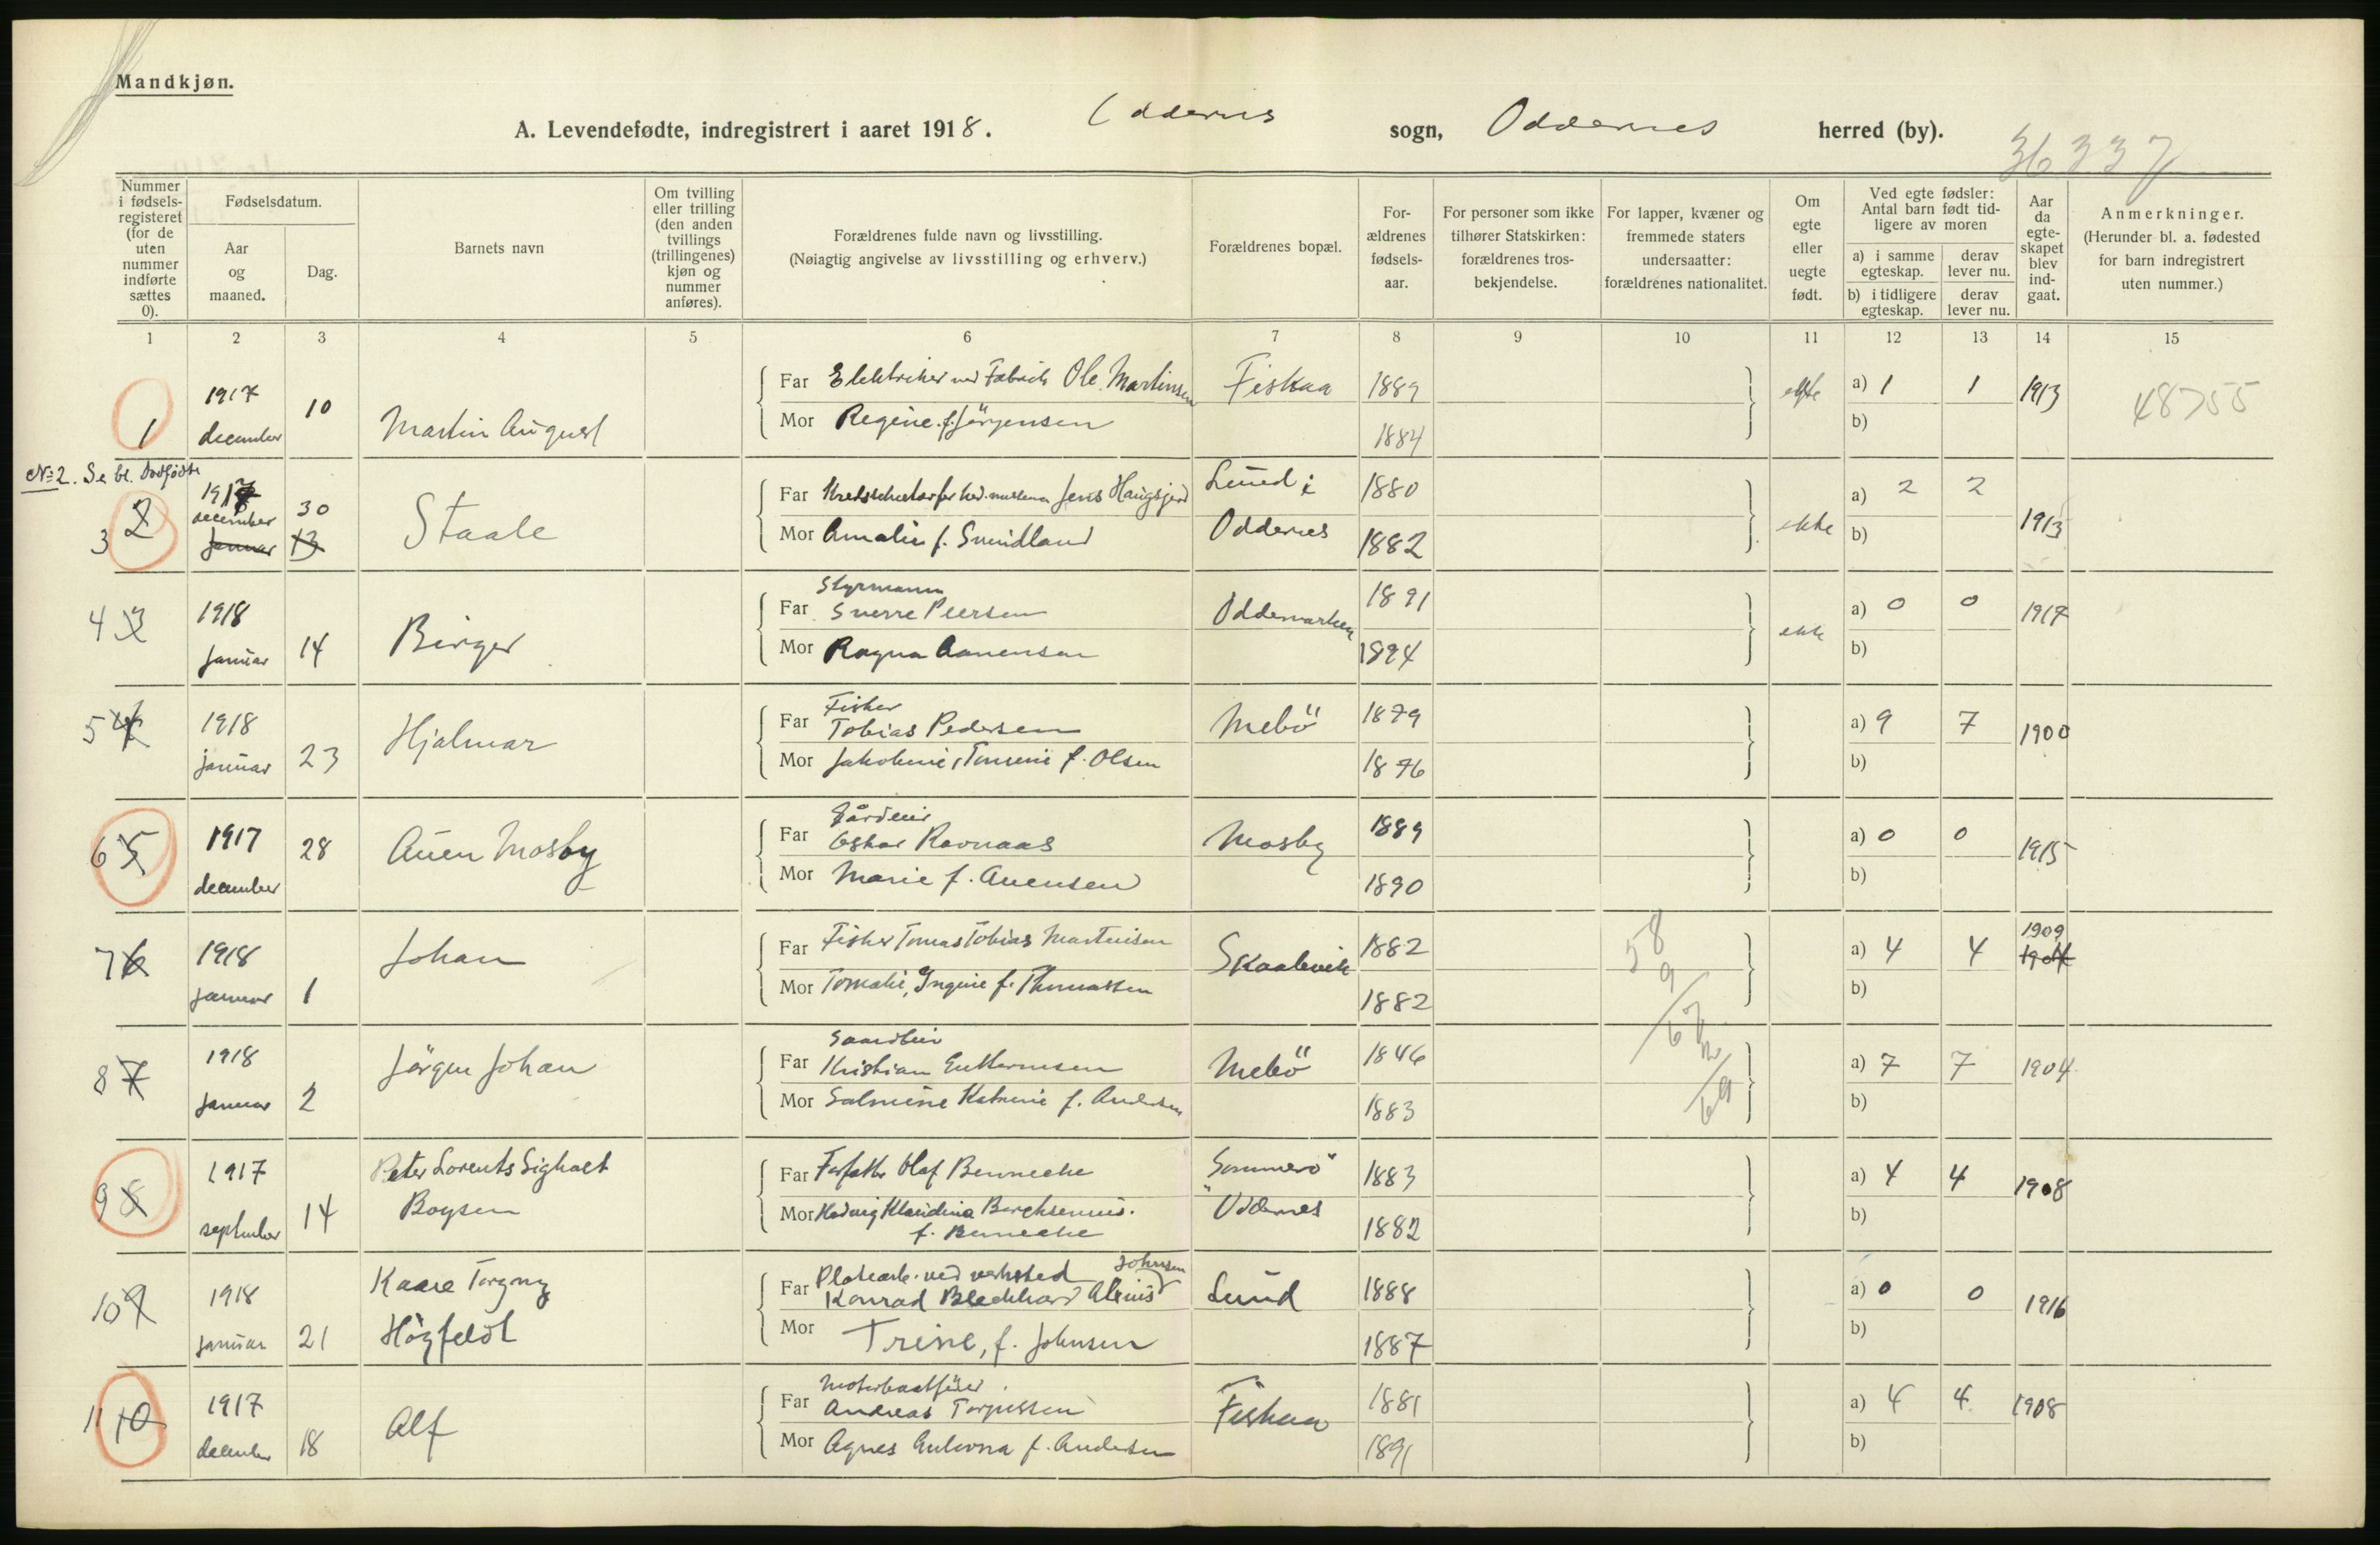 Mandkjøn.
A. Levendefødte, indregistrert i aaret 1918. Oddernes sogn, Oddernes herred (by).
36337
Nummer i fødsels-registeret (for de uten nummer indførte sættes 0).
Fødselsdatum.
Aar og maaned.
Dag.
Barnets navn
Om tvilling eller trilling (den anden tvillings (trillingenes) kjøn og nummer anføres).
Forældrenes fulde navn og livsstilling.
(Nøiagtig angivelse av livsstilling og erhverv.)
Forældrenes bopæl.
For-ældrenes fødsels-aar.
For personer som ikke tilhører Statskirken: forældrenes tros-bekjendelse.
For lapper, kvæner og fremmede staters undersaatter: forældrenes nationalitet.
Om egte eller uegte født.
Ved egte fødsler: Antal barn født tid-ligere av moren
a) i samme egteskap.
derav lever nu.
b) i tidligere egteskap.
derav lever nu.
Aar da egte-skapet blev ind-gaat.
Anmerkninger.
(Herunder bl. a. fødested for barn indregistrert uten nummer.)
1 2 3 4 5 6 7 8 9 10 11 12 13 14 15
1 1917 december 10 Martin August
Far Elektriker ved Fabrik Ole Martinsen Fiskaa 1889 egte a) 1 1 1913 48755
Mor Regine f. Jörgensen 1884 b)
No 2. Se bl. Dødfødte
3 2 1917 december 30 januar 13 Staale
Far Jens Haugsjerd Lund i 1880 a) 2 2 1913
Mor Amalie f. Oddernes 1882 ekte b)
4 3 1918 januar 14 Birger
Styrmann
Far Sverre Peersen Oddemarken 1891 a) 0 0 1917
Mor Ragna Aanensen 1894 ekte b)
5 4 1918 januar 23 Hjalmar
Fisker
Far Tobias Pedersen Mebö 1879 a) 9 7 1900
Mor Jakobine Tomine f. Olsen 1876 b)
6 5 1917 december 28 Auen Mosby
Far Oskar Ravnaas Mosby 1889 a) 0 0 1915
Mor Marie f. Auensen 1890 b)
7 6 1918 januar 1 Johan
Far Fisker Tomas Tobias Martinsen Skaalevik 1882 58 9 a) 4 4 1909 1904
Mor Tomalie, Ingine f. Thomassen 1882 67 b)
8 7 1918 januar 2 Jörgen Johan
Far Kristian Guttormsen Mebö 1846 2 a) 7 7 1904
Mor Salmine Katrine f. Andersen 1883 69 b)
9 8 1917 september 14 Peter Lorents Sigholt Boysen
Far Forfatter Olaf Benneche Sommerö 1883 a) 4 4 1908
Mor Hedvig Klaudina
f. Benneche Oddernes 1882 b)
10 9 1918 januar 21 Kaare Torgny Högfeldt
Platearb. ved verksted Johnsen
Far Konrad Bleckhard Lund 1888 a) 0 0 1916
Mor Trine, f. Johnsen 1887 b)
11 10 1917 december 18 Alf
Motorbaatfører
Far Andreas Torjussen Fiskaa 1881 a) 4 4 1908
Mor Agnes f. Andersen 1891 b)